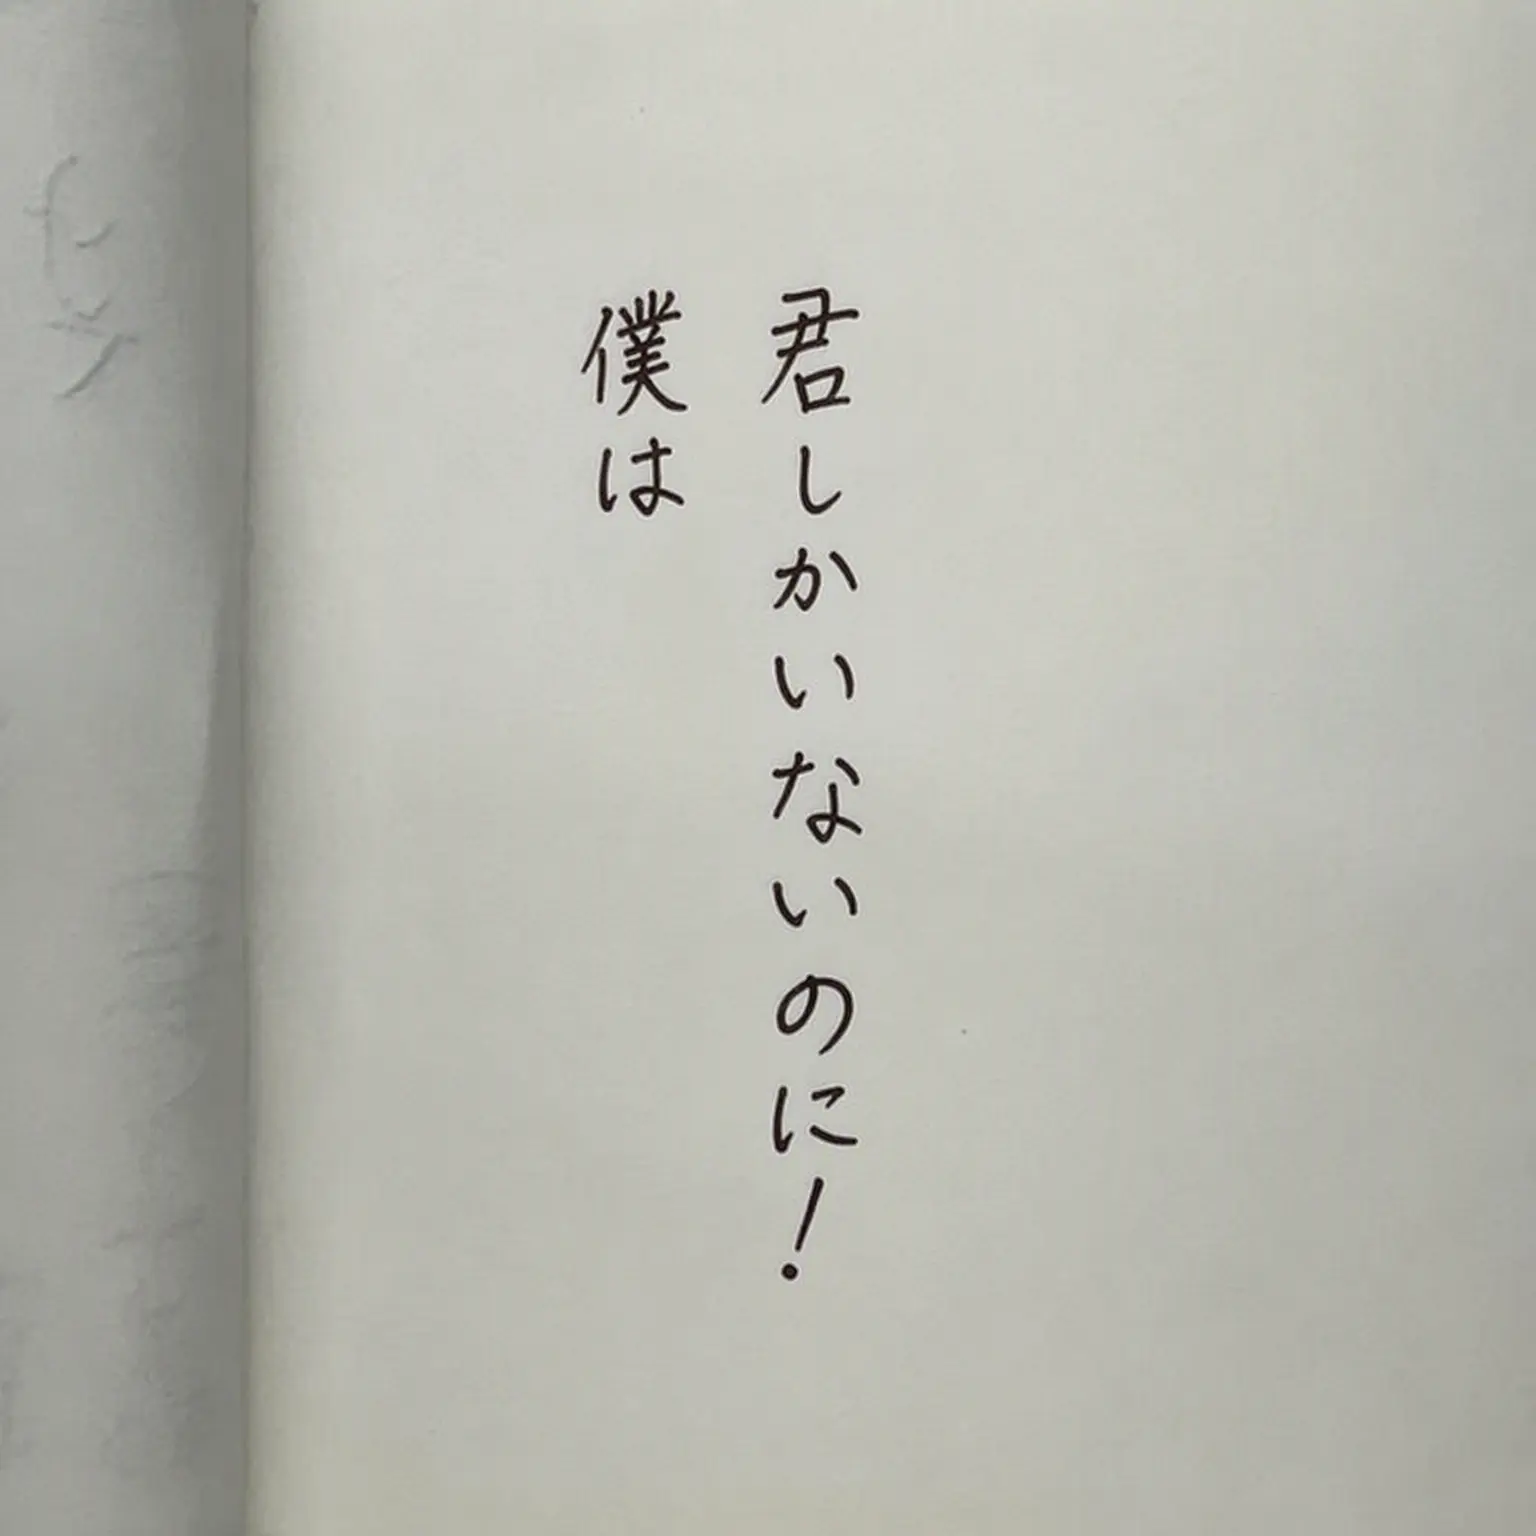 君しかいないのに！
僕は